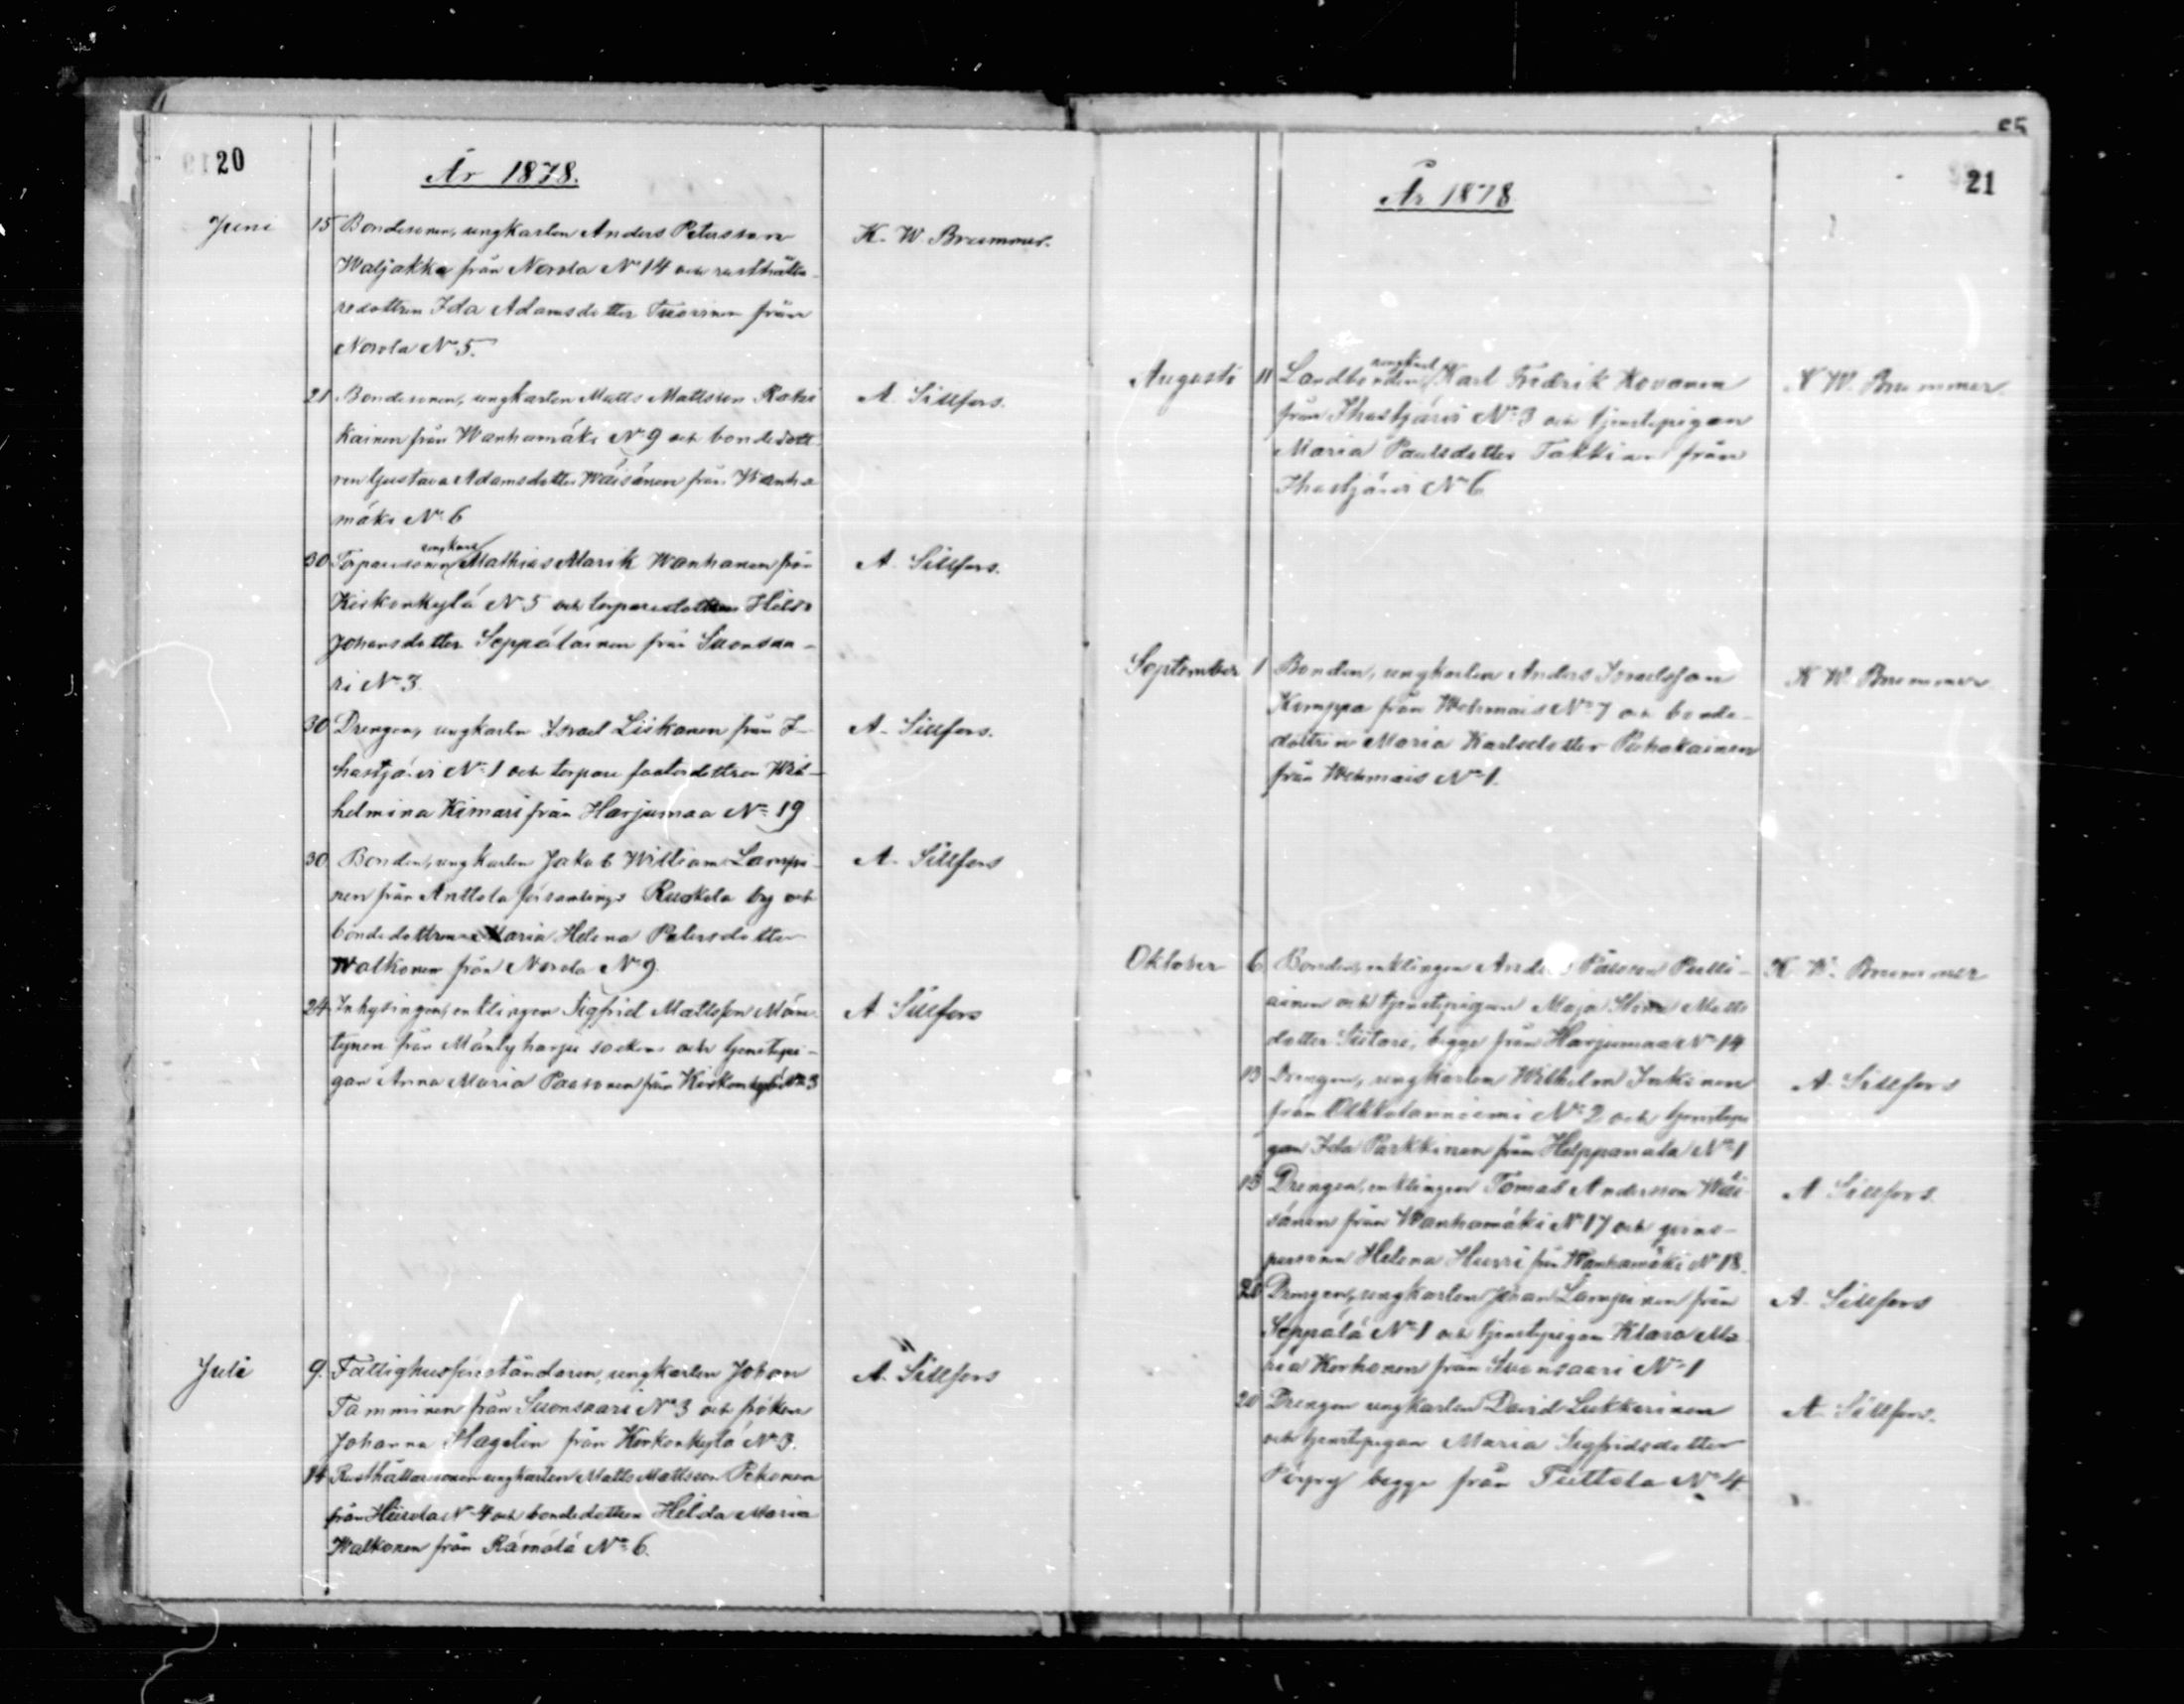 20
År 1878.
Juni 15 Bondesonen, ungkarlen Anders Petersson K. W. Brummer.
Waljakka från Norola No 14 och rusthålla-
redottren Ida Adamsdotter Tuorinen från
Norola No 5.
21 Bondesonen, ungkarlen Matts Mattsson Roki A. Sillfors.
kainen från Wanhamäki No 9 och bondedott-
ren Gustava Adamsdotter Wäisänen från Wanha
mäki No 6
ungkarl
30 Torparesonen Mathias Marik Wanhanen från A. Sillfors.
Kirkonkylä No 5 och torparedottren Hilda
Johansdotter Seppäläinen från Suonsaa-
ri No 3.
30 Drengen, ungkarlen Israel Liskanen från I- A. Sillfors.
hastjärvi No 1 och torpare dottren Wil-
helmina Kimari från Harjumaa No 19
30 Bonden, ungkarlen Jakob William Lampi- A. Sillfors
nen från Anttola församlings Ruokola by och
bondedottren Maria Helena Petersdotter
Walkonen från Norola No 9.
24 Inhysingen, enklingen Sigfrid Mattsson Män- A. Sillfors
tynen från Mäntyharju socken och tjenstepi-
gan Anna Maria Paasonen från Kirkonkylä No 3
Juli 9. Fattighusföreståndaren, ungkarlen Johan A. Sillfors
Tamminen från Suonsaari No 3 och fröken
Johanna Hagelin från Kirkonkylä No 3.
14 Rusthållaresonen ungkarlen Matts Mattsson Pekonen
från Hiirola No 4 och bondedottren Hilda Maria
Walkonen från Rämälä No 6.
65
21
År 1878
ungkarl
Augusti 11 Landbonden Karl Fredrik Kovanen K W. Brummer.
från Ihastjärvi No 3 och tjenstepigan
Maria Paulsdotter Takkinen från
Ihastjärvi No 6
September 1 Bonden, ungkarlen Anders Israelsson K W. Brummer
Kemppa från Wehmais No 7 och bonde-
dottren Maria Karlsdotter Puhakainen
från Wehmais No 1.
Oktober 6 Bonden, enklingen Anders Pålsson Pulli- K. W. Brummer
ainen och tjenstepigan Maja Stina Matts
dotter Siitari, begge från Harjumaa No 14
13 Drengen, ungkarlen Wilhelm Inkinen A. Sillfors
från Olkkolanniemi No 2 och tjenstepi
gan Ida Parkkinen från Helppamala No 1
13 Drengen, enklingen Tomas Andersson Wäi- A. Sillfors.
sänen från Wanhamäki No 17 och qvins-
personen Helena Hurri från Wanhamäki No 18.
20 Drengen, ungkarlen Johan Lampinen från A. Sillfors
Seppälä No 1 och tjenstepigan Klara Ma
ria Korhonen från Suonsaari No 1
20 Drengen ungkarlen David Lukkarinen A. Sillfors.
och tjenstepigan Maria Sigfridsdotter
Pöyry begge från Tuttola No 4